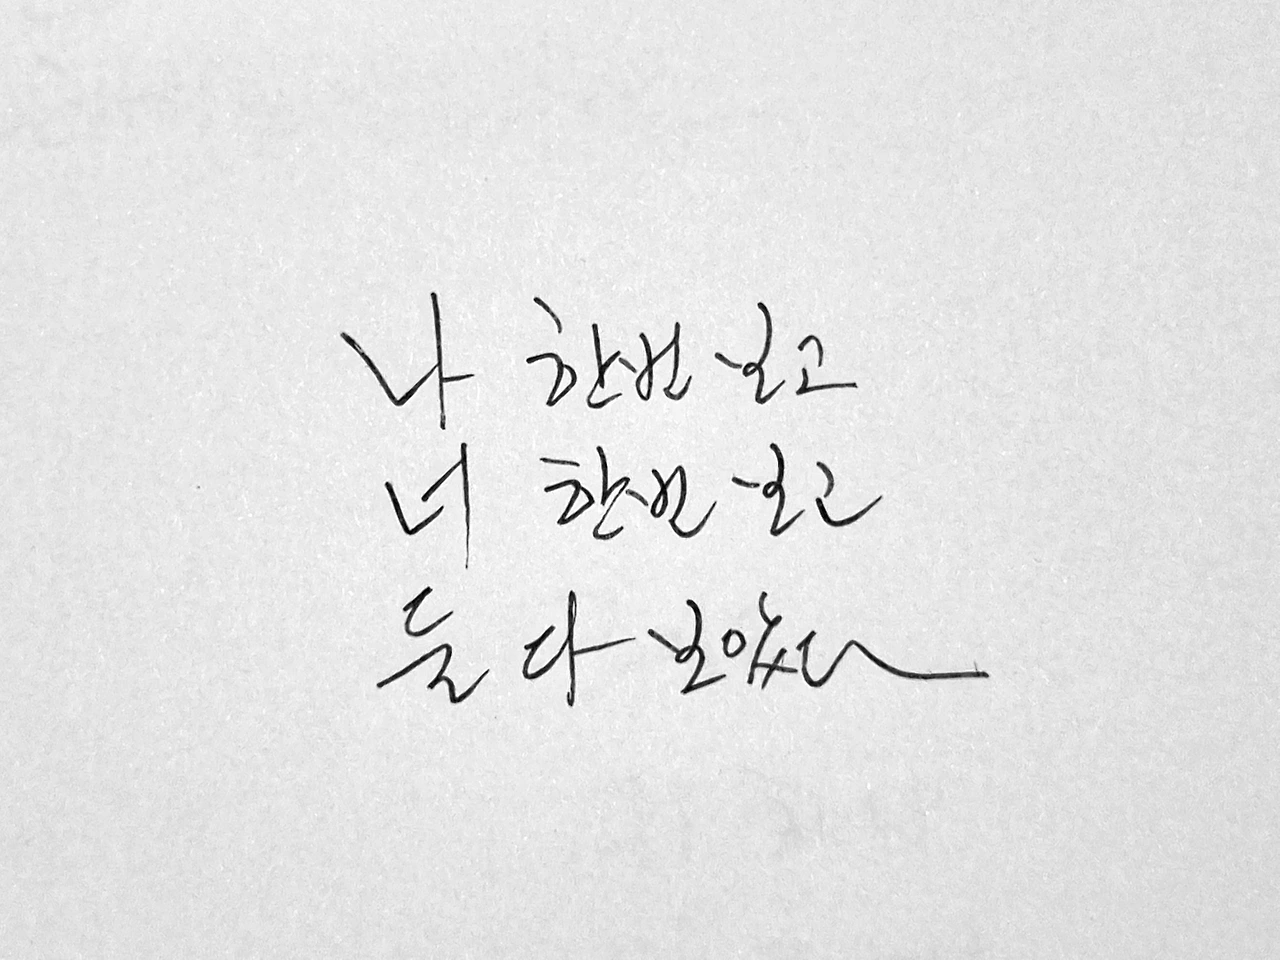 나 한번 보고
너 한번 보고
둘 다 보았다